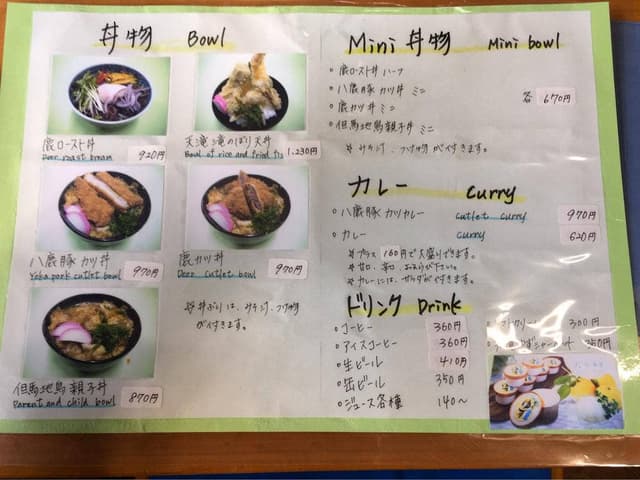 丼物 Bowl
鹿ロースト丼
Deer roast
920円
天滝滝のぼり天丼
Bowl of rice and fried
1,230円
八鹿豚カツ丼
Yoka pork cutlet bowl
970円
鹿カツ丼
Deer cutlet bowl
970円
但馬地鳥親子丼
Parent and child bowl
870円
がつきます。
Mini丼物 Mini bowl
○ 鹿ロースト丼 ハーフ
○ 八鹿豚カツ丼 ミニ
○ 鹿カツ丼 ミニ
○ 但馬地鳥親子丼 ミニ
各 670円
がつきます。
カレー Curry
○ 八鹿豚カツカレー cutlet curry 970円
○ カレー curry 620円
プラス160円で大盛りできます。
カレーには、サラダがつきます。
ドリンク Drink
○ コーヒー 360円
○ アイスコーヒー 360円
○ 生ビール 410円
○ 缶ビール 350円
○ ジュース各種 140〜
300円